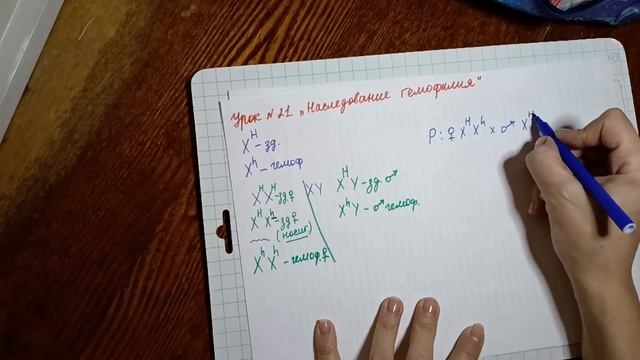 Урок №21 „Наследование гемофилия"
X^H – зд.
X^h – гемоф
X^H X^H – зд ♀
X^H X^h – зд ♀
(носит.)
X^h X^h – гемоф. ♀
XY
X^H Y – зд. ♂
X^h Y – ♂ гемоф.
P: ♀ X^H X^h x ♂ X^H